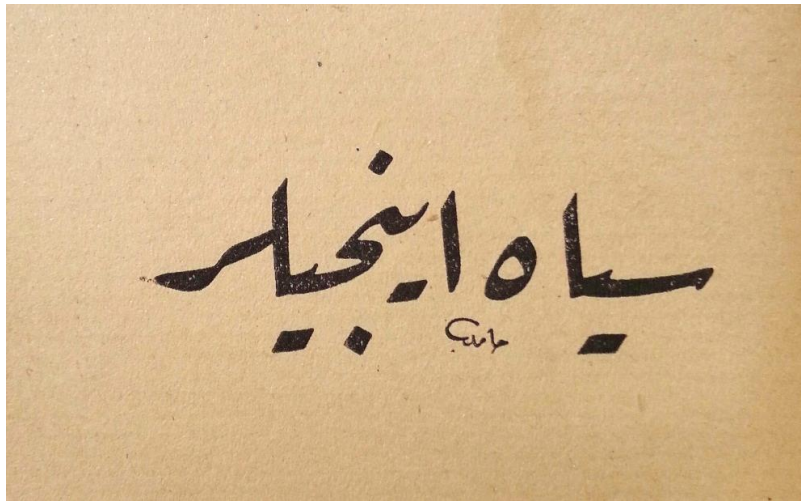 سیاه اینجیلر
حامد